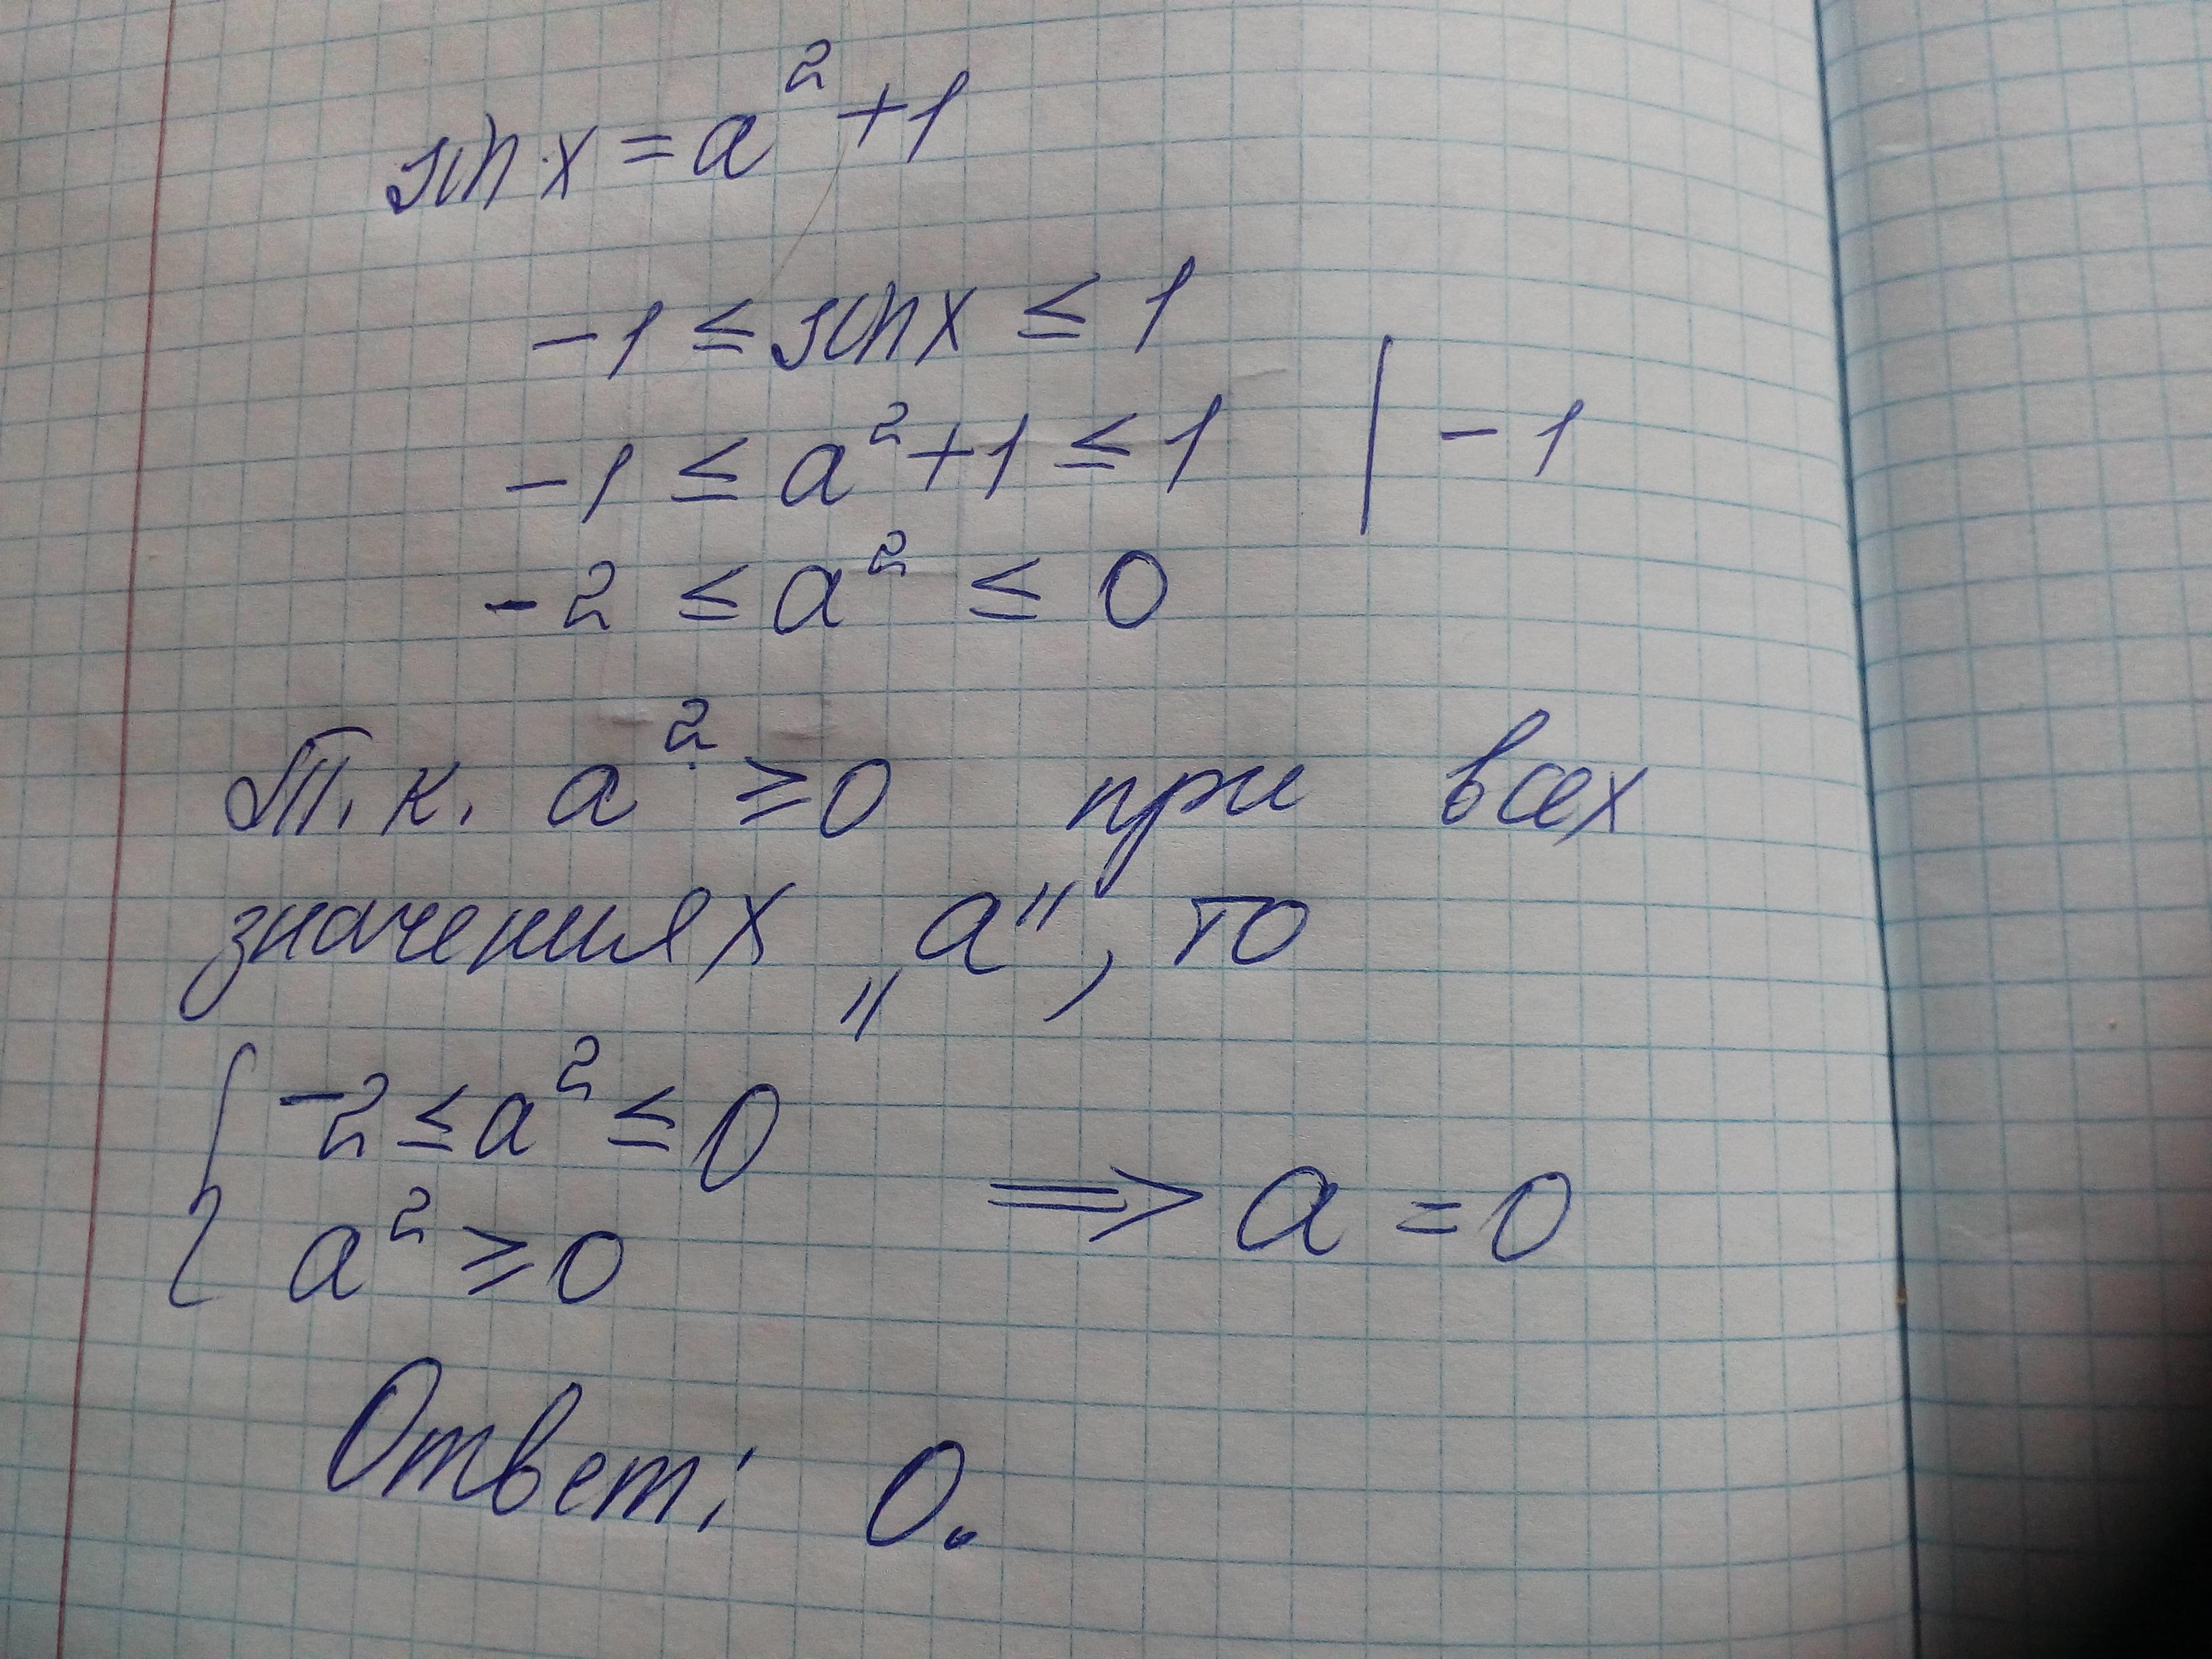 sin x = a² + 1
-1 ≤ sin x ≤ 1
-1 ≤ a² + 1 ≤ 1 | - 1
-2 ≤ a² ≤ 0
Т. к. a² ≥ 0 при всех
значениях „a“, то
{ -2 ≤ a² ≤ 0
a² ≥ 0 ⟹ a = 0
Ответ: 0.